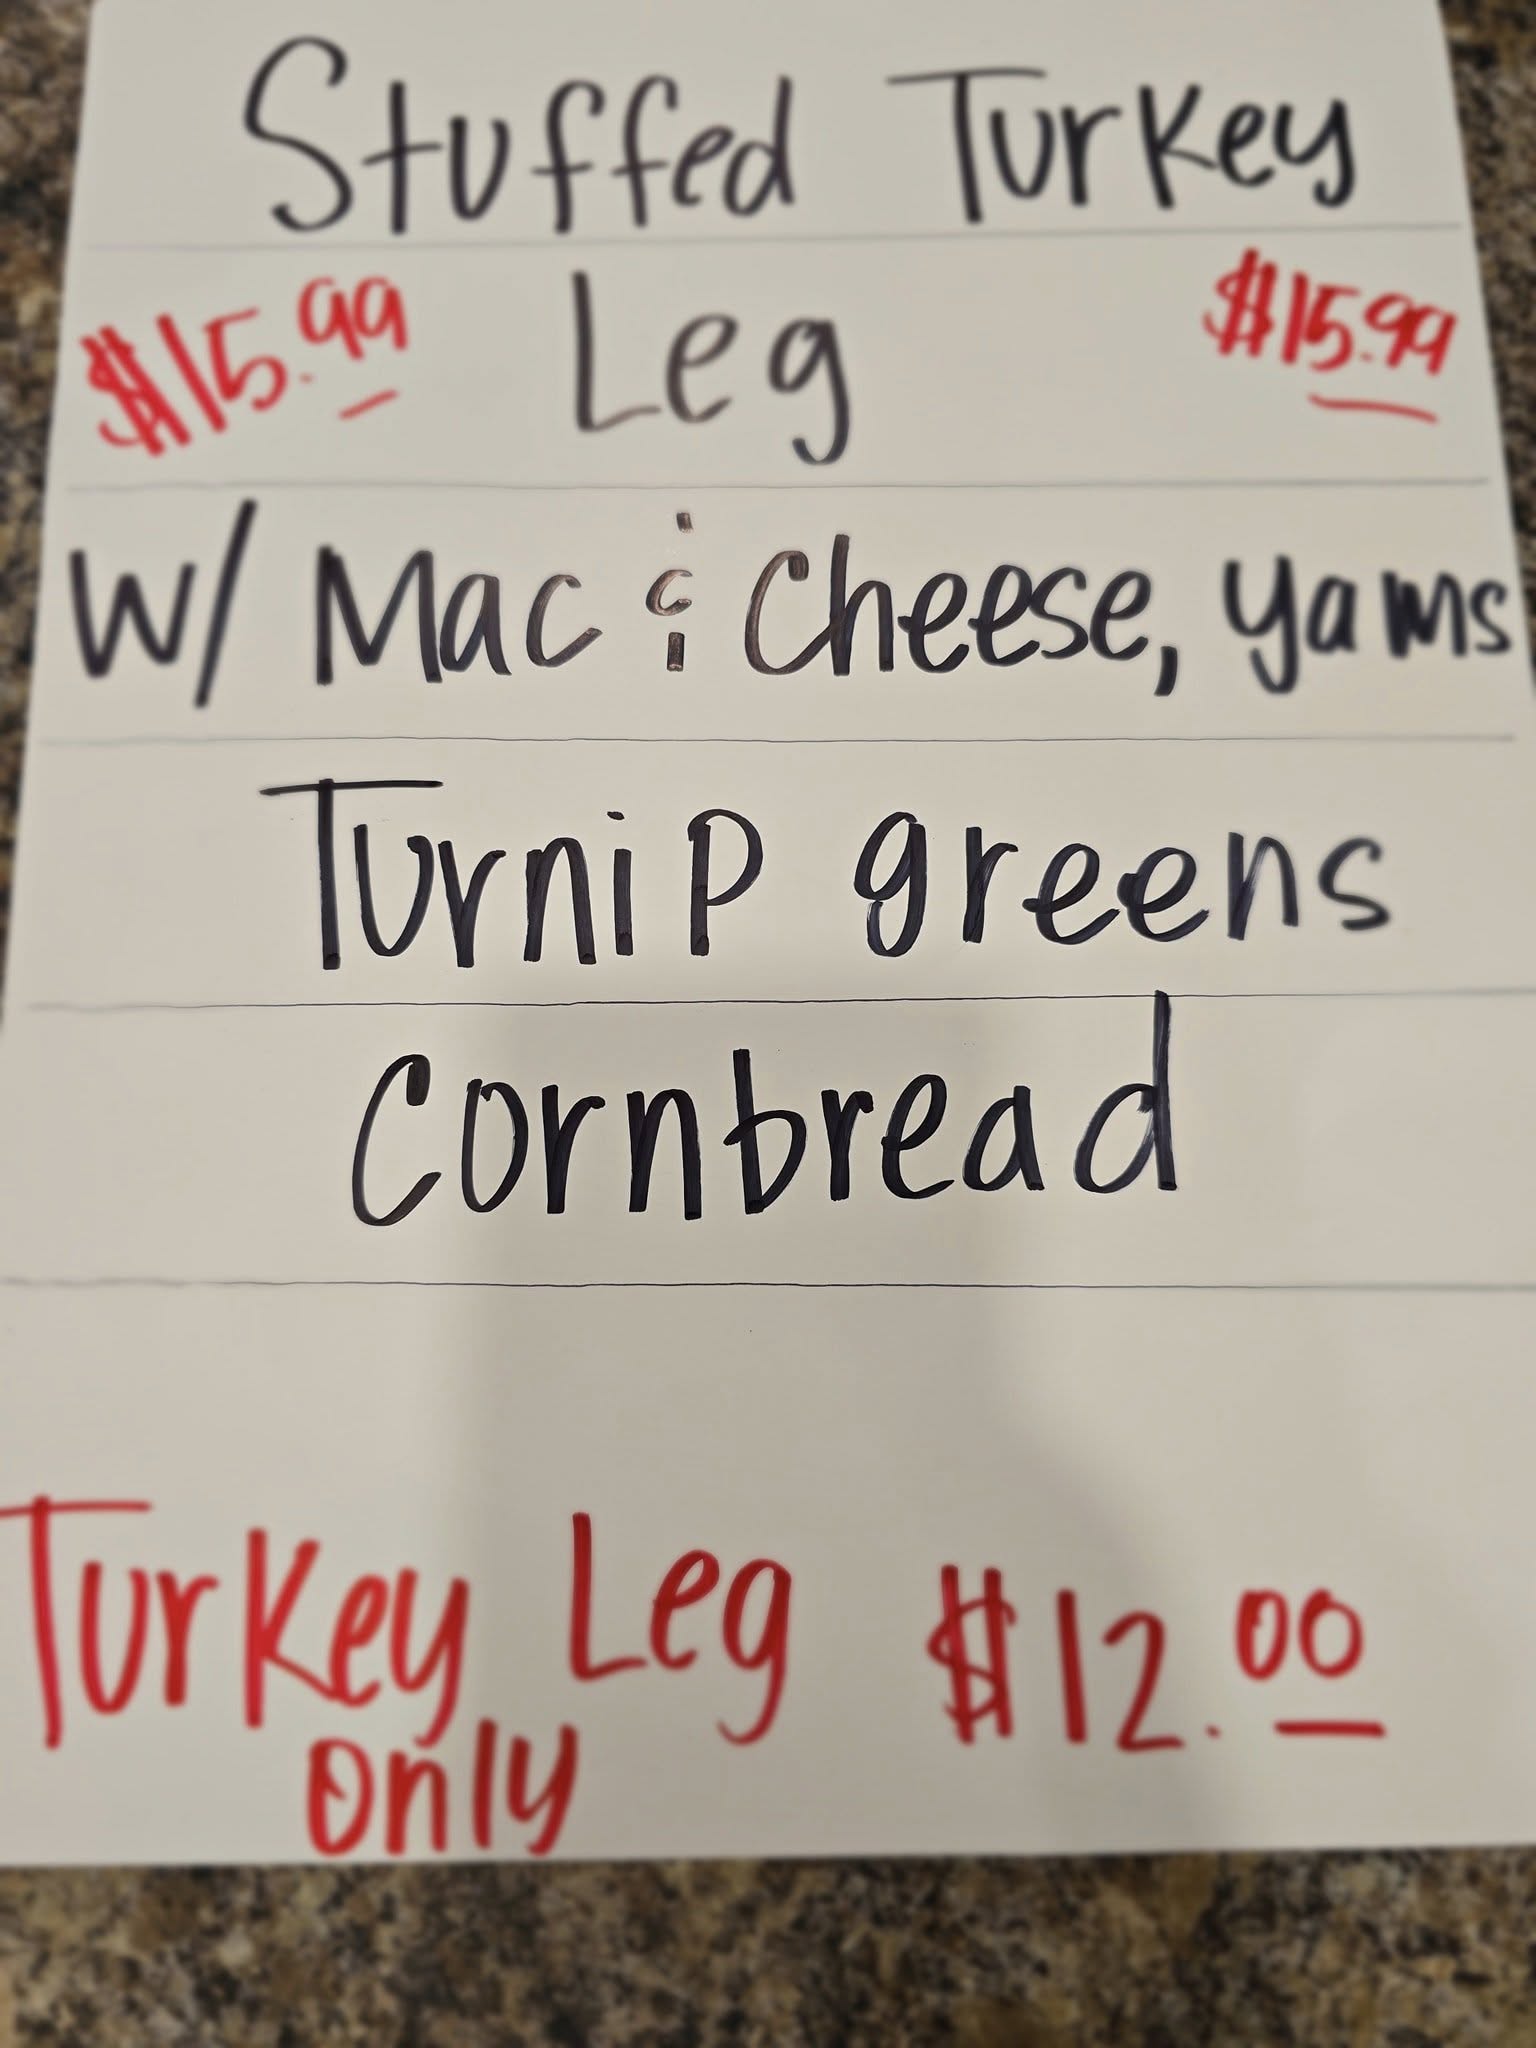 Stuffed Turkey
$15.99 Leg $15.99
W/ Mac & Cheese, yams
Turnip greens
Cornbread
Turkey Leg $12.00
only